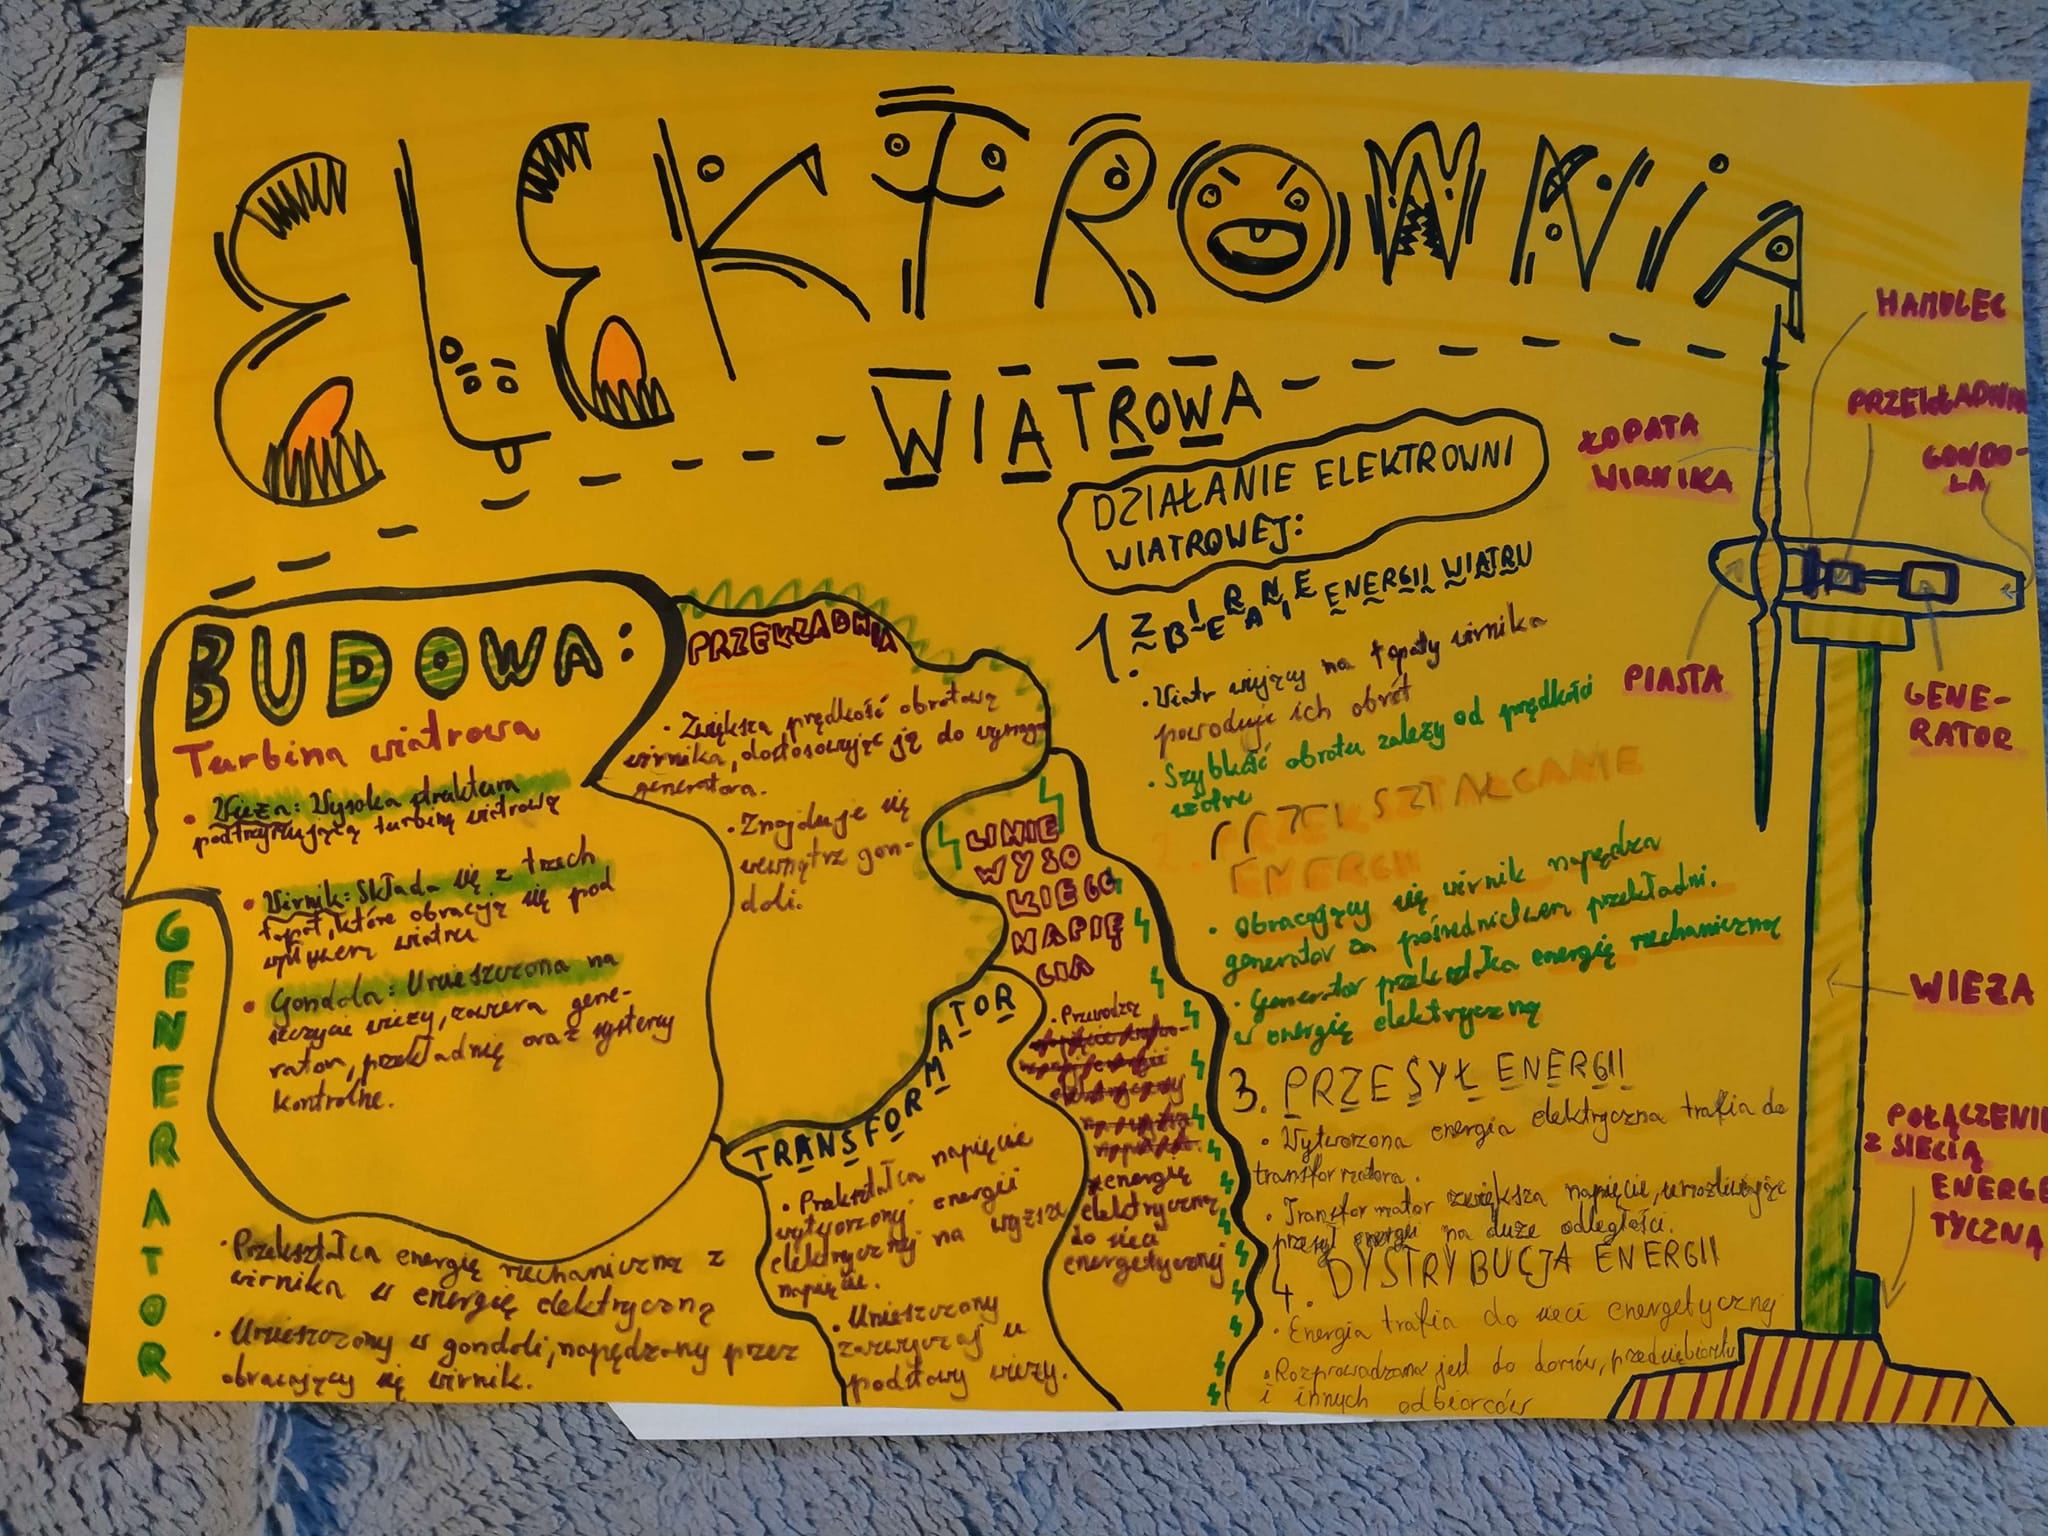 ELEKTROWNIA
WIATROWA
BUDOWA:
Turbina wiatrowa
• Wieża: Wysoka struktura
podtrzymująca turbinę wiatrową
• Wirnik: Składa się z trzech
łopat, które obracają się pod
wpływem wiatru
• Gondola: Umieszczona na
szczycie wieży, zawiera gene-
rator, przekładnię oraz systemy
kontrolne.
GENERATOR
• Przekształca energię mechaniczną z
wirnika w energię elektryczną
• Umieszczony w gondoli, napędzany przez
obracający się wirnik.
PRZEKŁADNIA
• Zwiększa prędkość obrotową
wirnika, dostosowując ją do wymagań
generatora.
• Znajduje się
wewnątrz gon-
doli.
TRANSFORMATOR
• Przekształca napięcie
wytworzonej energii
elektrycznej na wyższe
napięcie.
• Umieszczony
zazwyczaj u
podstawy wieży.
LINIE
WYSO
KIEGO
NAPIĘ
CIA
• Przewodzą
energię
elektryczną
do sieci
energetycznej
DZIAŁANIE ELEKTROWNI
WIATROWEJ:
1. ZBIERANIE ENERGII WIATRU
• Wiatr wiejący na łopaty wirnika
powoduje ich obrót
• Szybkość obrotu zależy od prędkości
wiatru
2. PRZEKSZTAŁCANIE
ENERGII
• Obracający się wirnik napędza
generator za pośrednictwem przekładni.
• Generator przekształca energię mechaniczną
w energię elektryczną
3. PRZESYŁ ENERGII
• Wytworzona energia elektryczna trafia do
transformatora.
• Transformator zwiększa napięcie, umożliwiając
przesył energii na duże odległości.
4. DYSTRYBUCJA ENERGII
• Energia trafia do sieci energetycznej
• Rozprowadzana jest do domów, przedsiębiorstw
i innych odbiorców
HAMULEC
PRZEKŁADNIA
GONDO-
LA
ŁOPATA
WIRNIKA
PIASTA
GENE-
RATOR
WIEŻA
POŁĄCZENIE
Z SIECIĄ
ENERGE
TYCZNĄ